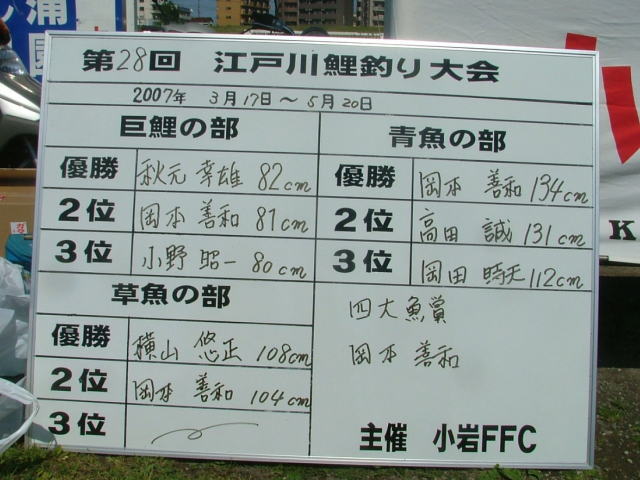 第28回 江戸川鯉釣り大会
2007年 3月17日～5月20日
巨鯉の部
優勝 秋元 幸雄 82cm
2位 岡本 善和 81cm
3位 小野 昭一 80cm
草魚の部
優勝 横山 悠正 108cm
2位 岡本 善和 104cm
3位
青魚の部
優勝 岡本 善和 134cm
2位 高田 誠 131cm
3位 岡田 112cm
四大魚賞
岡本 善和
主催 小岩FFC
浦
K